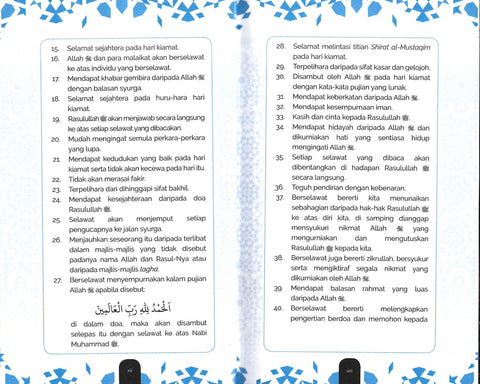 15. Selamat sejahtera pada hari kiamat.
16. Allah ﷻ dan para malaikat akan berselawat
ke atas individu yang berselawat.
17. Mendapat khabar gembira daripada Allah ﷻ
dengan balasan syurga.
18. Selamat sejahtera pada huru-hara hari
kiamat.
19. Rasulullah ﷺ akan menjawab secara langsung
ke atas setiap selawat yang dibacakan.
20. Mudah mengingat semula perkara-perkara
yang lupa.
21. Mendapat kedudukan yang baik pada hari
kiamat serta tidak akan kecewa pada hari itu.
22. Tidak akan merasai fakir.
23. Terpelihara dari dihinggapi sifat bakhil.
24. Mendapat kesejahteraan daripada doa
Rasulullah ﷺ.
25. Selawat akan menjemput setiap
pengucapnya ke jalan syurga.
26. Menjauhkan seseorang itu daripada terlibat
dalam majlis-majlis yang tidak disebut
padanya nama Allah dan Rasul-Nya atau
daripada majlis-majlis lagha.
27. Berselawat menyempurnakan kalam pujian
Allah ﷻ apabila disebut:
اَلْحَمْدُ لِلّٰهِ رَبِّ الْعَالَمِيْنَ
di dalam doa, maka akan disambut
selepas itu dengan selawat ke atas Nabi
Muhammad ﷺ.
28. Selamat melintasi titian Shirat al-Mustaqim
pada hari kiamat.
29. Terpelihara daripada sifat kasar dan gelojoh.
30. Disambut oleh Allah ﷻ pada hari kiamat
dengan kata-kata pujian yang lunak.
31. Mendapat keberkatan daripada Allah ﷻ.
32. Mendapat kesempurnaan iman.
33. Kasih dan cinta kepada Rasulullah ﷺ.
34. Mendapat hidayah daripada Allah ﷻ dan
dikurniakan hati yang sentiasa hidup
mengingati Allah ﷻ.
35. Setiap selawat yang dibaca akan
dibentangkan di hadapan Rasulullah ﷺ
secara langsung.
36. Teguh pendirian dengan kebenaran.
37. Berselawat bererti kita menunaikan
sebahagian daripada hak-hak Rasulullah ﷺ
ke atas diri kita, di samping dianggap
mensyukuri nikmat Allah ﷻ yang
mengurniakan dan mengutuskan
Rasulullah ﷺ kepada kita.
38. Berselawat juga bererti zikrullah, bersyukur
serta mengiktiraf segala nikmat yang
dikurniakan oleh Allah ﷻ.
39. Mendapat balasan rahmat yang luas
daripada Allah ﷻ.
40. Berselawat bererti melengkapkan
pengertian berdoa dan memohon kepada